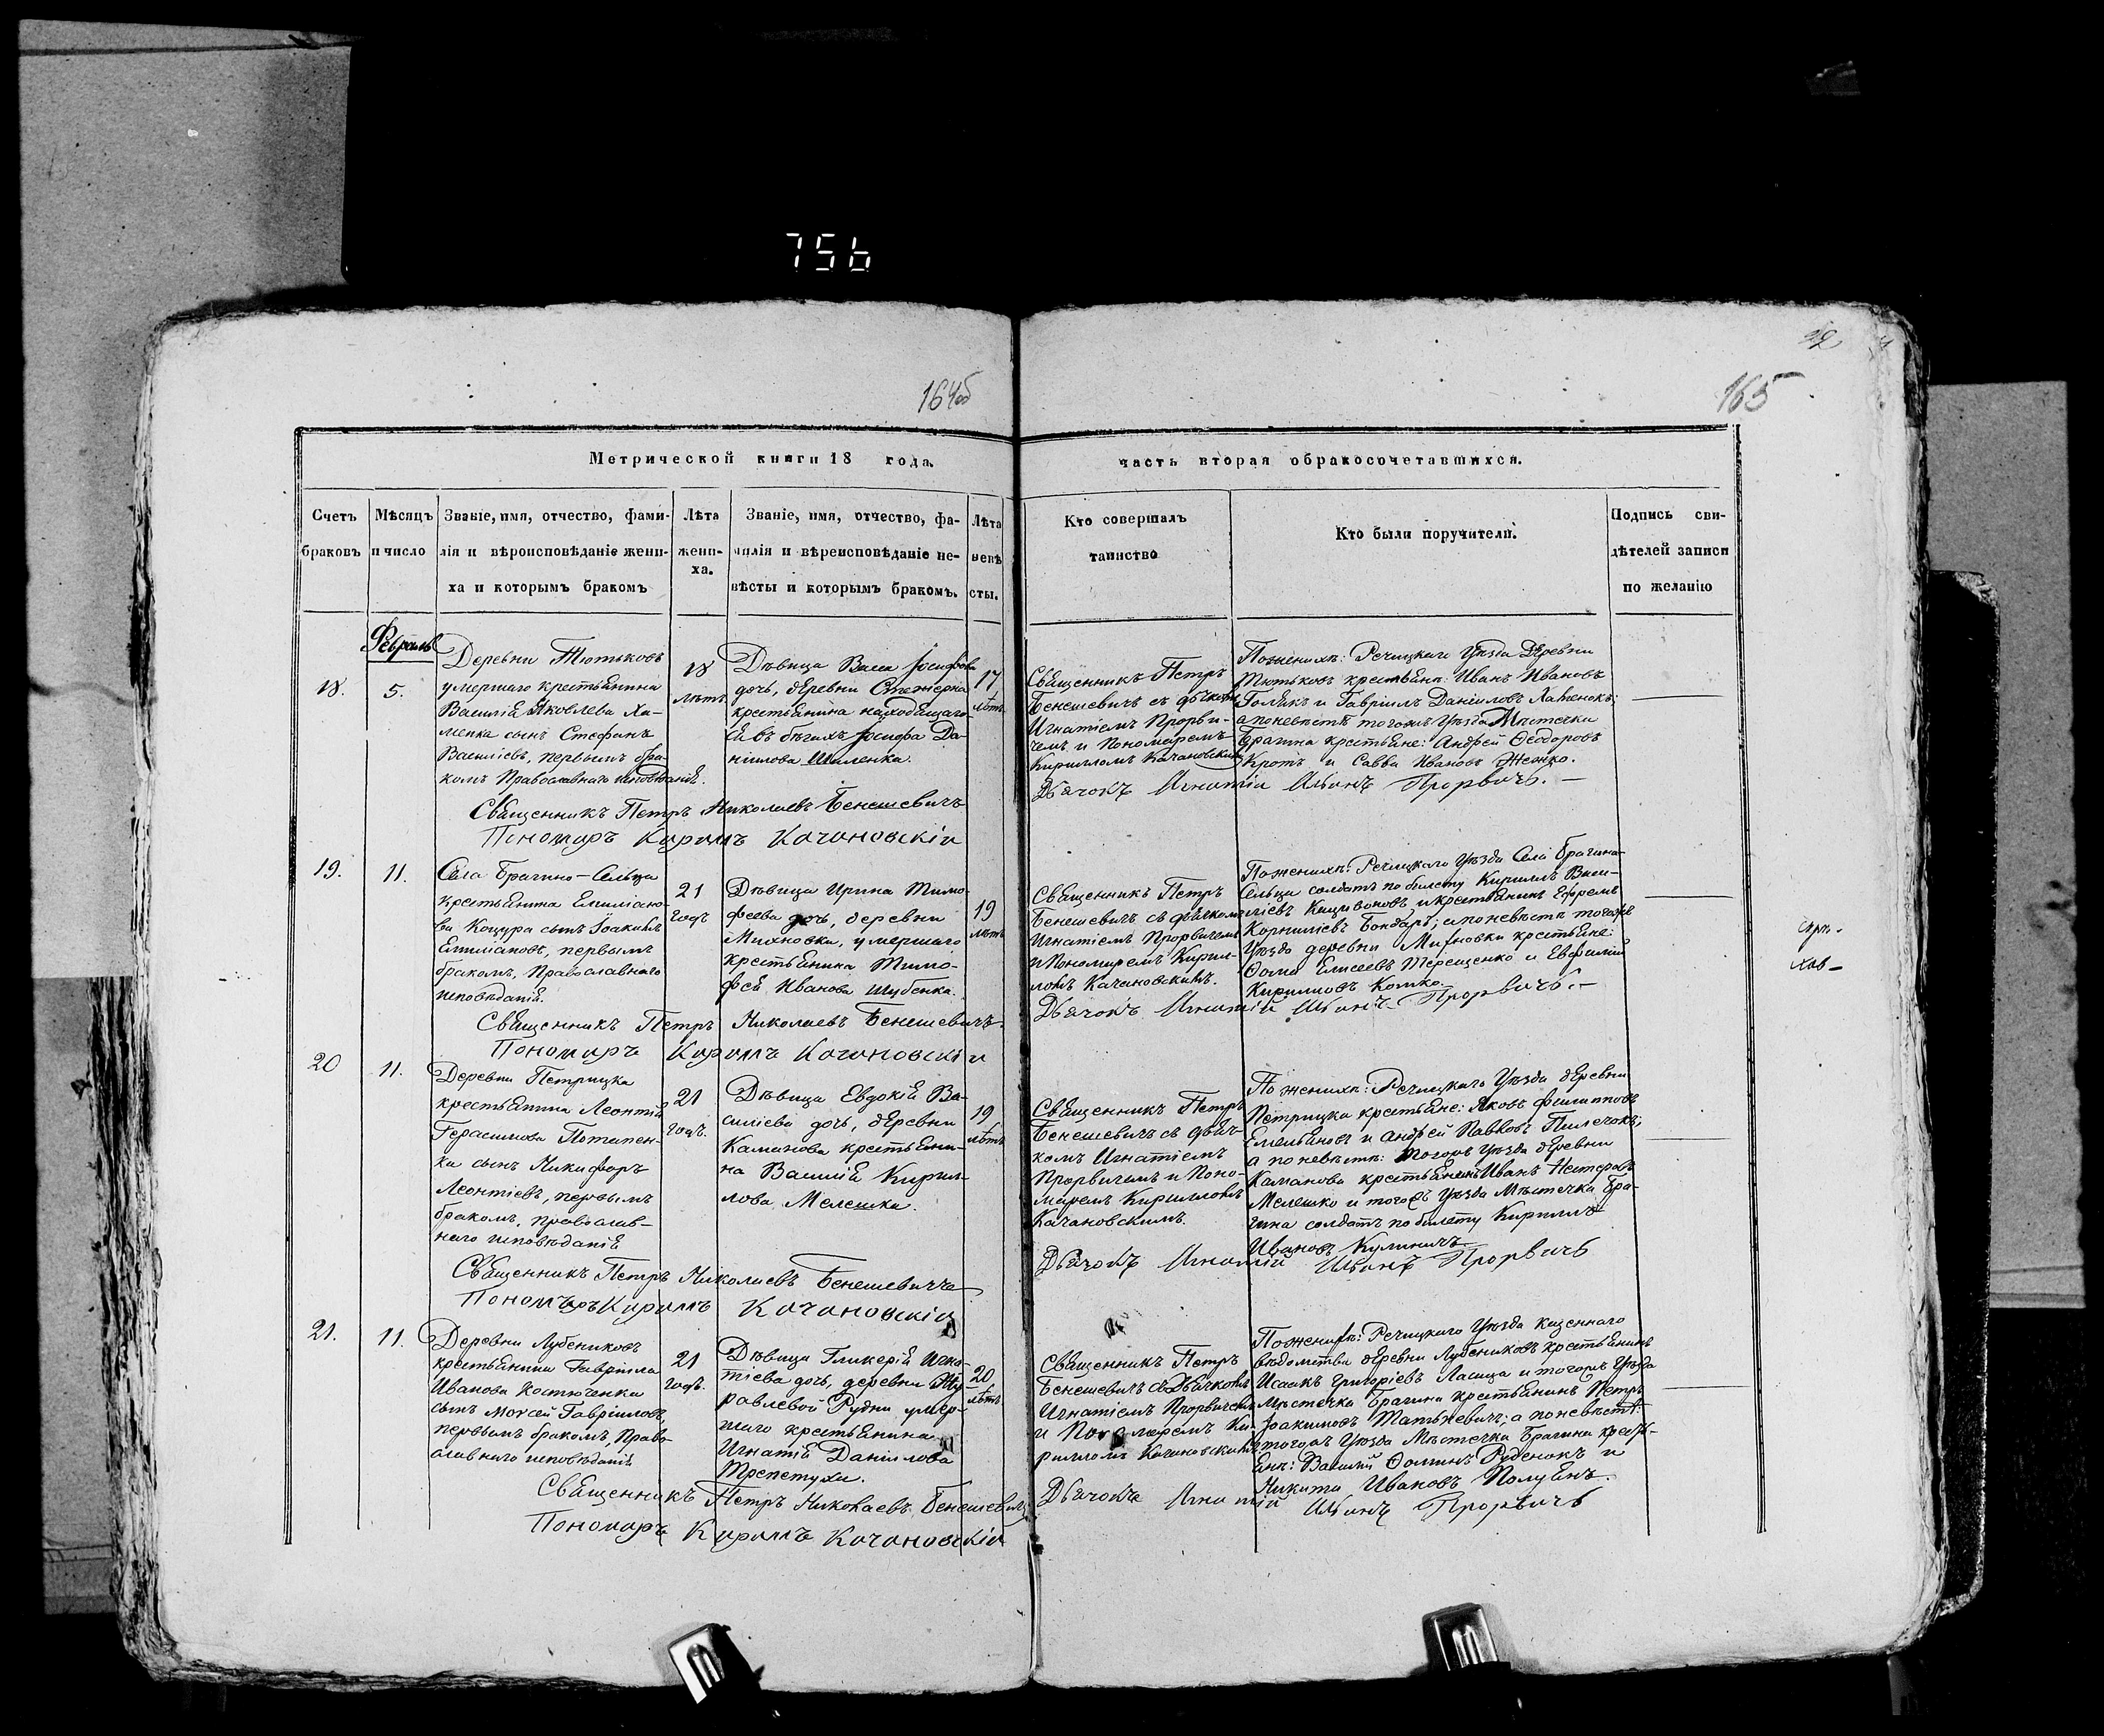 756
164об
165
Метрической книги 18 года.
часть вторая о бракосочетавшихся.
Счетъ браковъ
Мѣсяцъ и число
Званіе, имя, отчество, фами-
лія и вѣроисповѣданіе жени-
ха и которымъ бракомъ
Лѣта
жени-
ха.
Званіе, имя, отчество, фа-
милія и вѣреисповѣданіе не-
вѣсты и которымъ бракомъ.
Лѣта
невѣ
сты.
Кто совершалъ
таинство
Кто были поручители.
Подпись сви-
дѣтелей записи
по желанію
Февраль
18.
5.
Деревни Тютьковъ
умершаго крестьянина
Василія Яковлева Ха-
менка сынъ Стефанъ
Василіевъ, первымъ бра-
комъ Православнаго исповѣданія.
18
лѣтъ
Дѣвица Васса Іосифова
дочь, деревни
крестьянина находящаго-
ся въ бѣгахъ Іосифа Да-
ніилова Шиленка.
17
лѣтъ
Священникъ Петръ
Бенешевичъ съ дьячкомъ
Игнатіемъ Прорви-
чемъ и Пономаремъ
Кирилломъ Качановскимъ
По женихѣ: Речицкаго Уѣзда Деревни
Тютьковъ крестьяне: Иванъ Ивановъ
и Гавріилъ Даніиловъ
а по невѣстѣ тогожъ Уѣзда Мѣстечка
Брагина крестьяне: Андрей Ѳеодоровъ
Кротъ и Савва Ивановъ
Священникъ Петръ Николаевъ Бенешевичъ
Пономарь Кирилъ Качановскій
Дьячокъ Игнатій Ивановъ Прорвичь.
19.
11.
Села Брагино-Сельца
крестьянина Емиліано-
ва Коцура сынъ Іоакимъ
Емиліановъ, первымъ
бракомъ, Православнаго
исповѣданія.
21
годъ
Дѣвица Ирина Тимо-
феева дочь, деревни
Михновка, умершаго
крестьянина Тимо-
фея Иванова Шубенка.
19
лѣтъ
Священникъ Петръ
Бенешевичъ съ дьячкомъ
Игнатіемъ Прорвичемъ
и Пономаремъ Кирил-
ломъ Качановскимъ.
По женихѣ: Речицкаго Уѣзда Села Брагина-
Сельца солдатъ по билету Кириллъ Васи-
ліевъ и крестьянинъ Ефремъ
Корниліевъ Бондарь; а по невѣстѣ тогожъ
Уѣзда деревни Михновки крестьяне:
Ѳома Елисеевъ Терещенко и Евфимій
Кирилловъ Комко.
Священникъ Петръ Николаевъ Бенешевичъ
Пономарь Кирилъ Качановскій
Дьячокъ Игнатій Ивановъ Прорвичь.
20
11.
Деревни Петрицка
крестьянина Леонтія
Герасимова Потапен-
ка сынъ Никифоръ
Леонтіевъ, первымъ
бракомъ, православ-
наго исповѣданія
21
годъ.
Дѣвица Евдокія Ва-
силіева дочь, деревни
Каманова крестьяни-
на Василія Кирил-
лова Мелешка.
19
лѣтъ
Священникъ Петръ
Бенешевичъ съ дьяч-
комъ Игнатіемъ
Прорвичемъ и Поно-
маремъ Кирилломъ
Качановскимъ.
По женихѣ: Речицкаго Уѣзда деревни
Петрицка крестьяне: Яковъ Филипповъ
Емельяновъ и Андрей Павловъ
а по невѣстѣ: тогожъ Уѣзда деревни
Каманова крестьянинъ Иванъ Нестеровъ
Мелешко и тогожъ Уѣзда Мѣстечка Бра-
гина солдатъ по билету Кириллъ
Ивановъ Кулиничъ.
Священникъ Петръ Николаевъ Бенешевичъ
Пономарь Кирилъ Качановскій
Дьячокъ Игнатій Ивановъ Прорвичь
21.
11.
Деревни Лубениковъ
крестьянина Гавріила
Иванова Костюченка
сынъ Моѵсей Гавріиловъ,
первымъ бракомъ, Право-
славнаго исповѣданія
21
годъ.
Дѣвица Гликерія Игна-
тіева дочь, деревни Жу-
равлевой Рудни умер-
шаго крестьянина
Игнатія Даніилова
Трепетухи.
20
лѣтъ
Священникъ Петръ
Бенешевичъ съ Дьячкомъ
Игнатіемъ Прорвичемъ
и Пономаремъ Ки-
рилломъ Качановскимъ
По женихѣ: Речицкаго Уѣзда казеннаго
вѣдомства деревни Лубениковъ крестьянинъ
Исаакъ Григоріевъ Ласица и тогожъ Уѣзда
Мѣстечка Брагина крестьянинъ Петръ
Іоакимовъ; а по невѣстѣ:
тогожъ Уѣзда Мѣстечка Брагина кресть-
яне: Василій Ѳоминъ Руденокъ и
Никита Ивановъ Полуянъ.
Священникъ Петръ Николаевъ Бенешевичъ
Пономарь Кирилъ Качановскій
Дьячокъ Игнатій Ивановъ Прорвичь